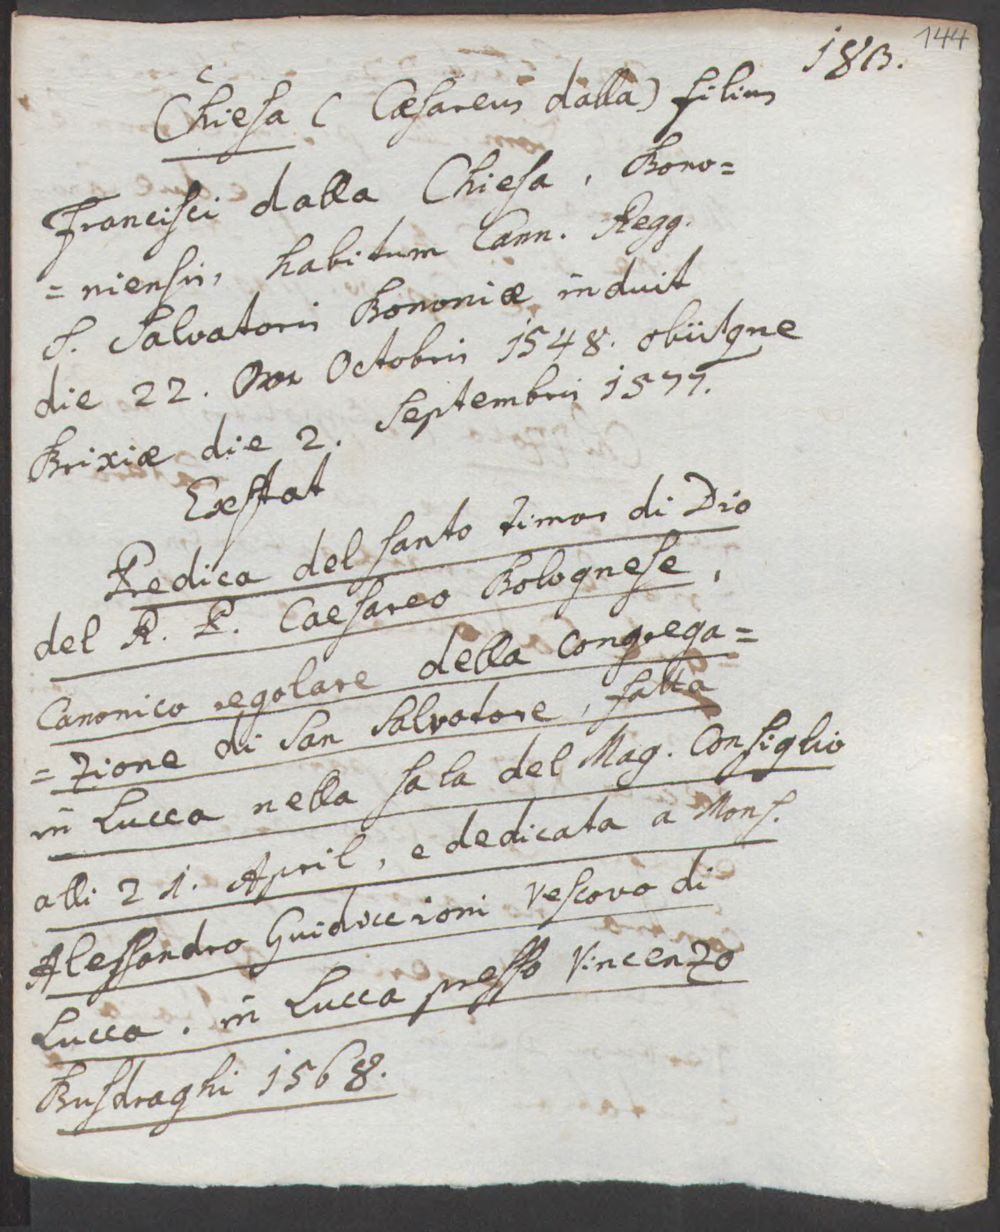 144
183.
Chiesa ( Cæsareus dalla) filius
Francisci dalla Chiesa, Bono=
=niensis, habitum Cann. Regg.
S. Salvatoris Bononiæ induit
die 22. Octobris 1548. obiitque
Brixiæ die 2. Septembris 1577.
Exstat
Predica del santo timor di Dio
del R. P. Caesareo Bolognese,
Canonico regolare della Congrega=
=zione di San Salvatore, fatta
in Lucca nella sala del Mag. Consiglio
alli 21. April, e dedicata a Mons.
Alessandro Guidiccioni Vescovo di
Lucca. in Lucca presso Vincenzo
Busdraghi 1568.